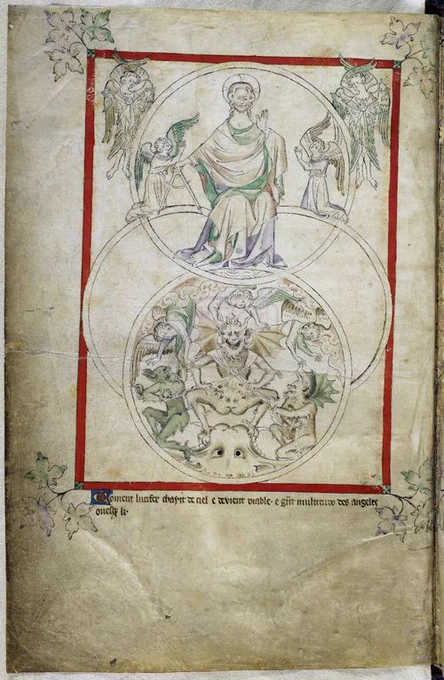 Coment lucifer chayit de ciel e devient diable· e gͣnt multitudo des angeles
ovesqe li·